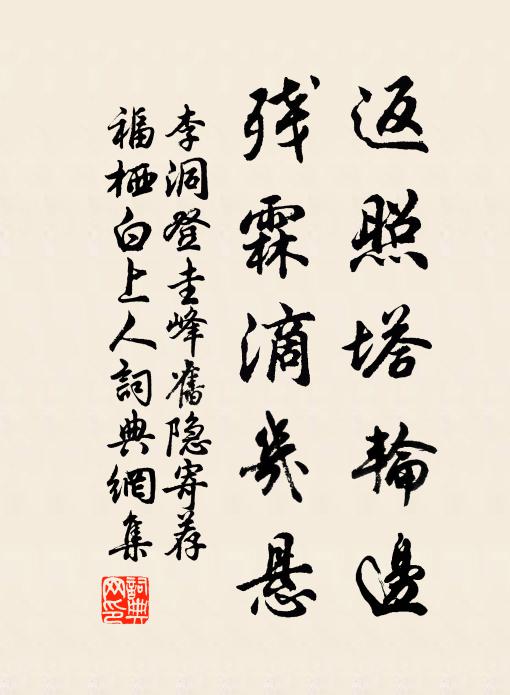 返照塔輪邊
残霖滴幾懸
李洞登圭峰舊隐寄荐
福栖白上人詞典網集
詞典
网印